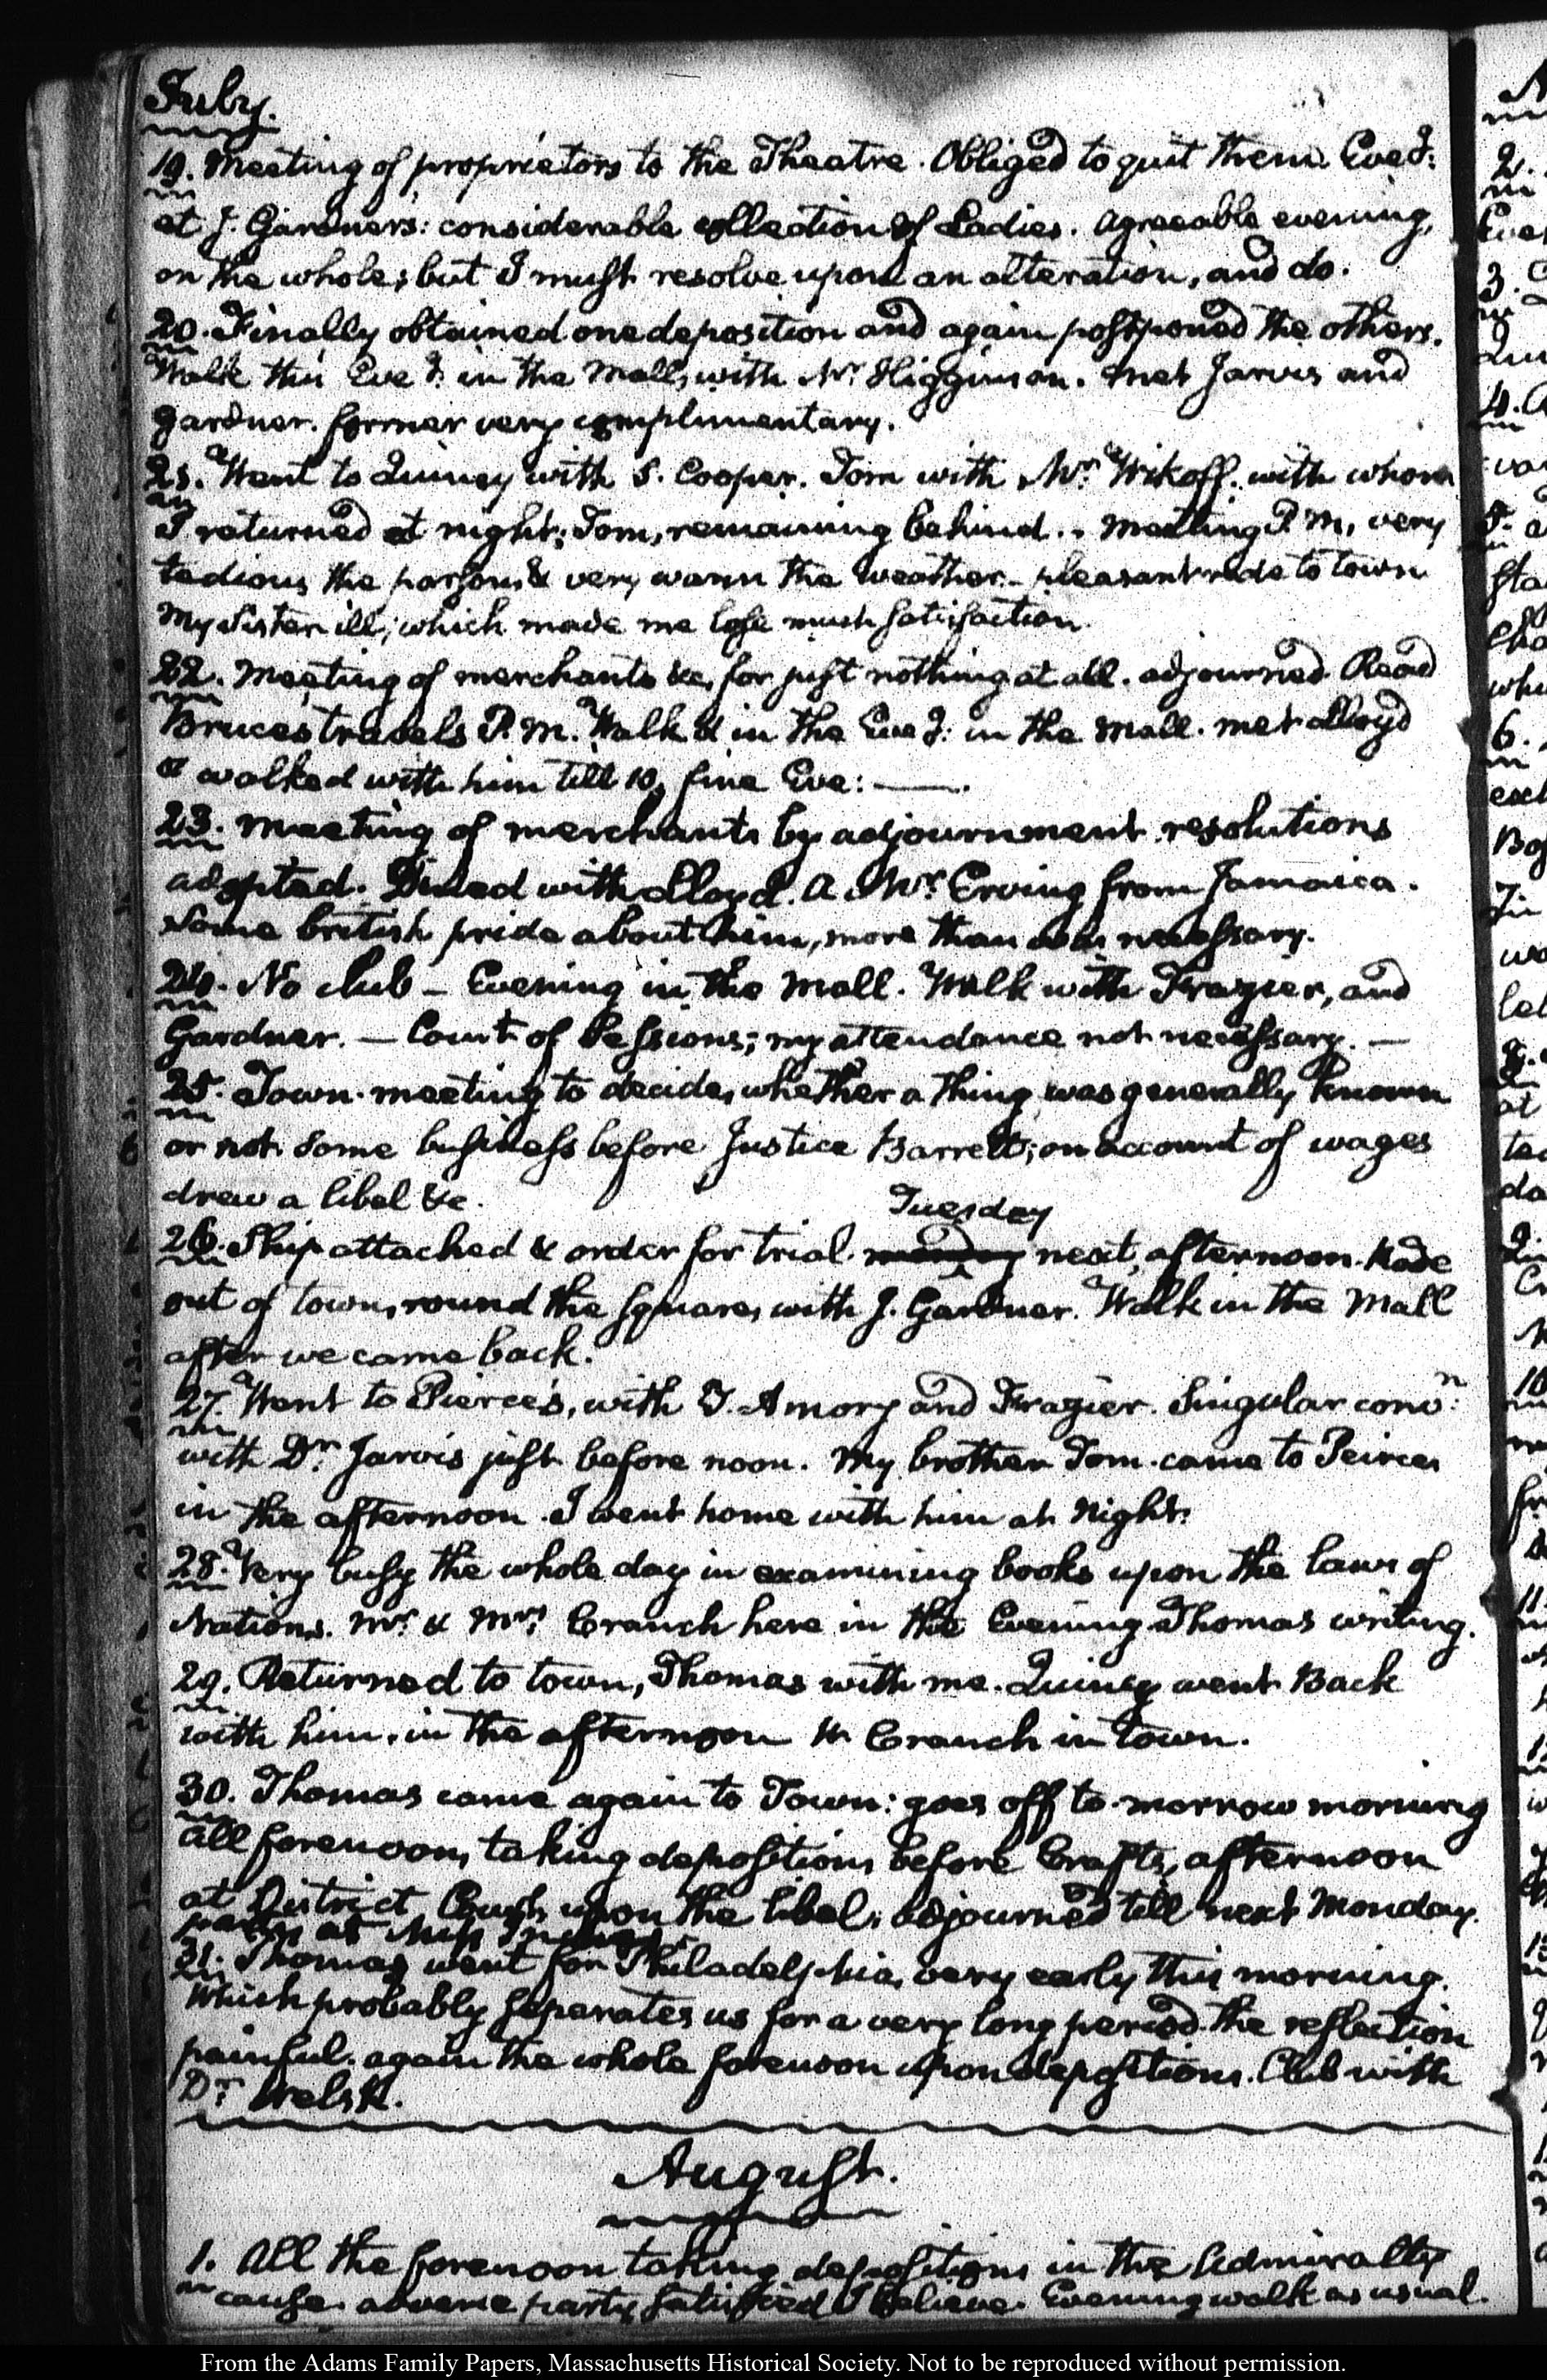 July.
19. Meeting of proprietors to the Theatre. Obliged to quit them Eveg:
at J. Gardner's: considerable collection of Ladies. agreeable evening,
on the whole; but I must resolve upon an alteration, and do.
20. Finally obtained one deposition and again postponed the others.
Walk this Eveg: in the Mall, with Mr. Higginson. met Jarvis and
Gardner. former very complimentary.
21. Went to Quincy with S. Cooper. Tom with Mr. Wikoff. with whom
I returned at night; Tom, remaining behind. Meeting P.M, very
tedious the parson, & very warm the weather. pleasant ride to town
My Sister ill; which made me lose much satisfaction.
22. Meeting of merchants &c, for just nothing at all. adjourned. Read
Bruce's travels P.M. Walk'd in the Eveg: in the Mall. met Lloyd
& walked with him till 10, fine Eve: —.
23. Meeting of merchants by adjournment. resolutions
adopted. Dined with Lloyd. a Mr. Erving from Jamaica.
Some british pride about him, more than was necessary.
24. No club — Evening in the Mall. Walk with Frazier, and
Gardner. — Court of Sessions; my attendance not necessary. —
25. Town-meeting to decide, whether a thing was generally known
or not. Some business before Justice Barrett; on account of wages
drew a libel &c.
Tuesday
26. Ship attached & order for trial next, afternoon. Rode
out of town, round the square, with J. Gardner. Walk in the Mall
after we came back.
27. Went to Pierce's, with T. Amory and Frazier. Singular convn:
with Dr. Jarvis just before noon. My brother Tom. came to Peirces
in the afternoon. I went home with him at night.
28. Very busy the whole day in examining books upon the laws of
Nations. Mr. & Mrs. Cranch here in the Evening Thomas writing.
29. Returned to town, Thomas with me. Quincy went Back
with him. in the afternoon W. Cranch in town.
30. Thomas came again to Town: goes off to-morrow morning
all forenoon, taking depositions before Crafts, afternoon
at District Court, upon the libel; adjourned till next Monday.
party at Miss
31. Thomas went for Philadelphia, very early this morning.
Which probably separates us for a very long period. the reflection
painful. again the whole forenoon upon depositions. Club with
Dr. Welsh.
August.
1. All the forenoon taking depositions in the Admiralty
cause. adverse party satisfied I believe. Evening walk as usual.
From the Adams Family Papers, Massachusetts Historical Society. Not to be reproduced without permission.